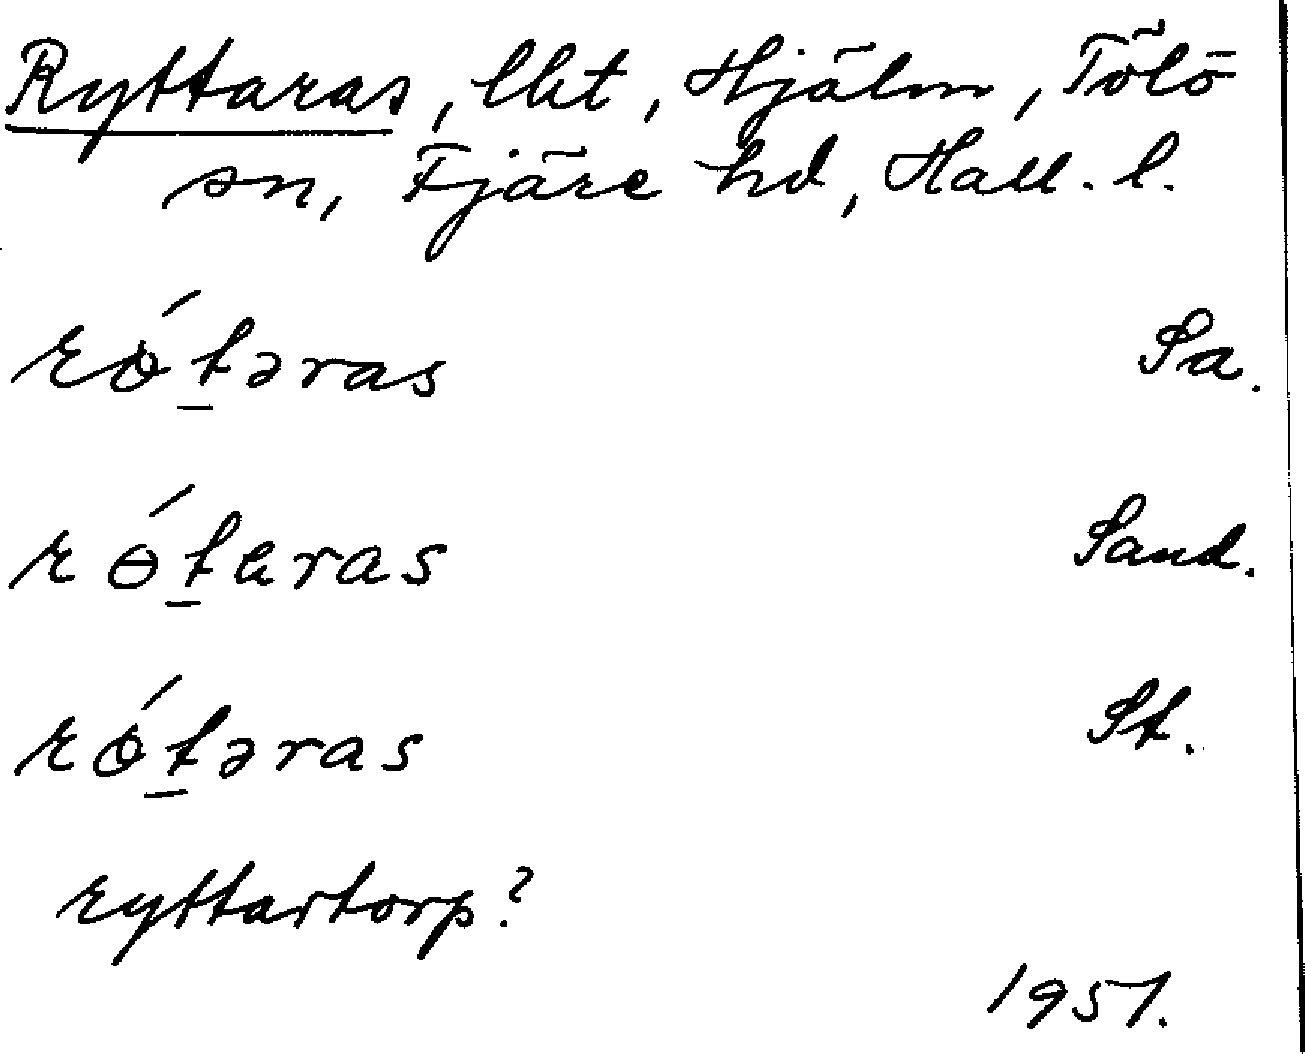 Ryttaras, lht, Hjälm, Tölö
sn, Fjäre hd, Hall. l.
rótəras Sa.
rɵ́taras Sand.
rótəras St.
ryttartorp?
1951.